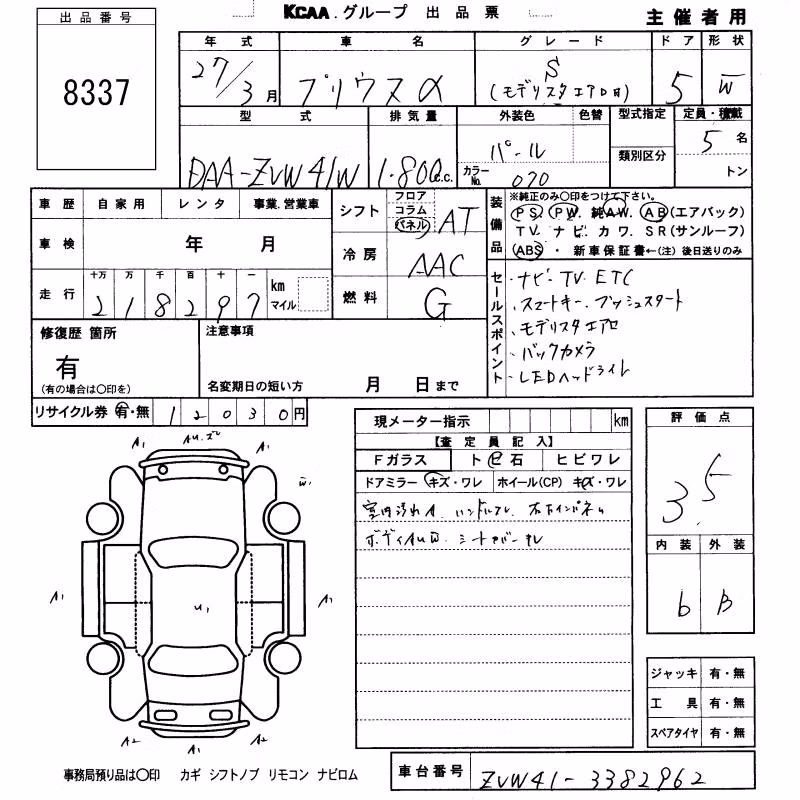 KCAA.グループ 出品票
主催者用
出品番号
8337
年式 車名 グレード ドア 形状
27/3月 プリウスα S (モデリスタエアロ付) 5 W
型式 排気量 外装色 色替 型式指定 定員・積載
類別区分
DAA-ZVW41W 1.800c.c. パール カラーNo. 070 5名
トン
車歴 自家用 レンタ 事業.営業車
車検 年 月
走行 十万 万 千 百 十 一 km マイル
218297
シフト フロア コラム パネル AT
冷房 AAC
燃料 G
装備品 ※純正のみ○印をつけて下さい。
PS. PW. 純AW. AB(エアバック)
TV. ナビ. カワ. SR(サンルーフ)
ABS ・ 新車保証書←(注)後日送りのみ
セールスポイント
・ナビ・TV・ETC
・スマートキー・プッシュスタート
・モデリスタエアロ
・バックカメラ
・LEDヘッドライト
修復歴 箇所
有
(有の場合は○印を)
注意事項
名変期日の短い方 月 日まで
リサイクル券 有・無 12030円
現メーター指示 km
【査定員記入】
Fガラス ト ビ 石 ヒビワレ
ドアミラー キズ・ワレ ホイール(CP) キズ・ワレ
室内汚れA. ハンドルスレ.
ボディAUB. シート
評価点
3.5
内装 外装
b B
A1 AU.ズレ A1
W1
A1 U1 A1
A2 A1 A2
ジャッキ 有・無
工具 有・無
スペアタイヤ 有・無
事務局預り品は○印 カギ シフトノブ リモコン ナビロム
車台番号 ZVW41-3382962